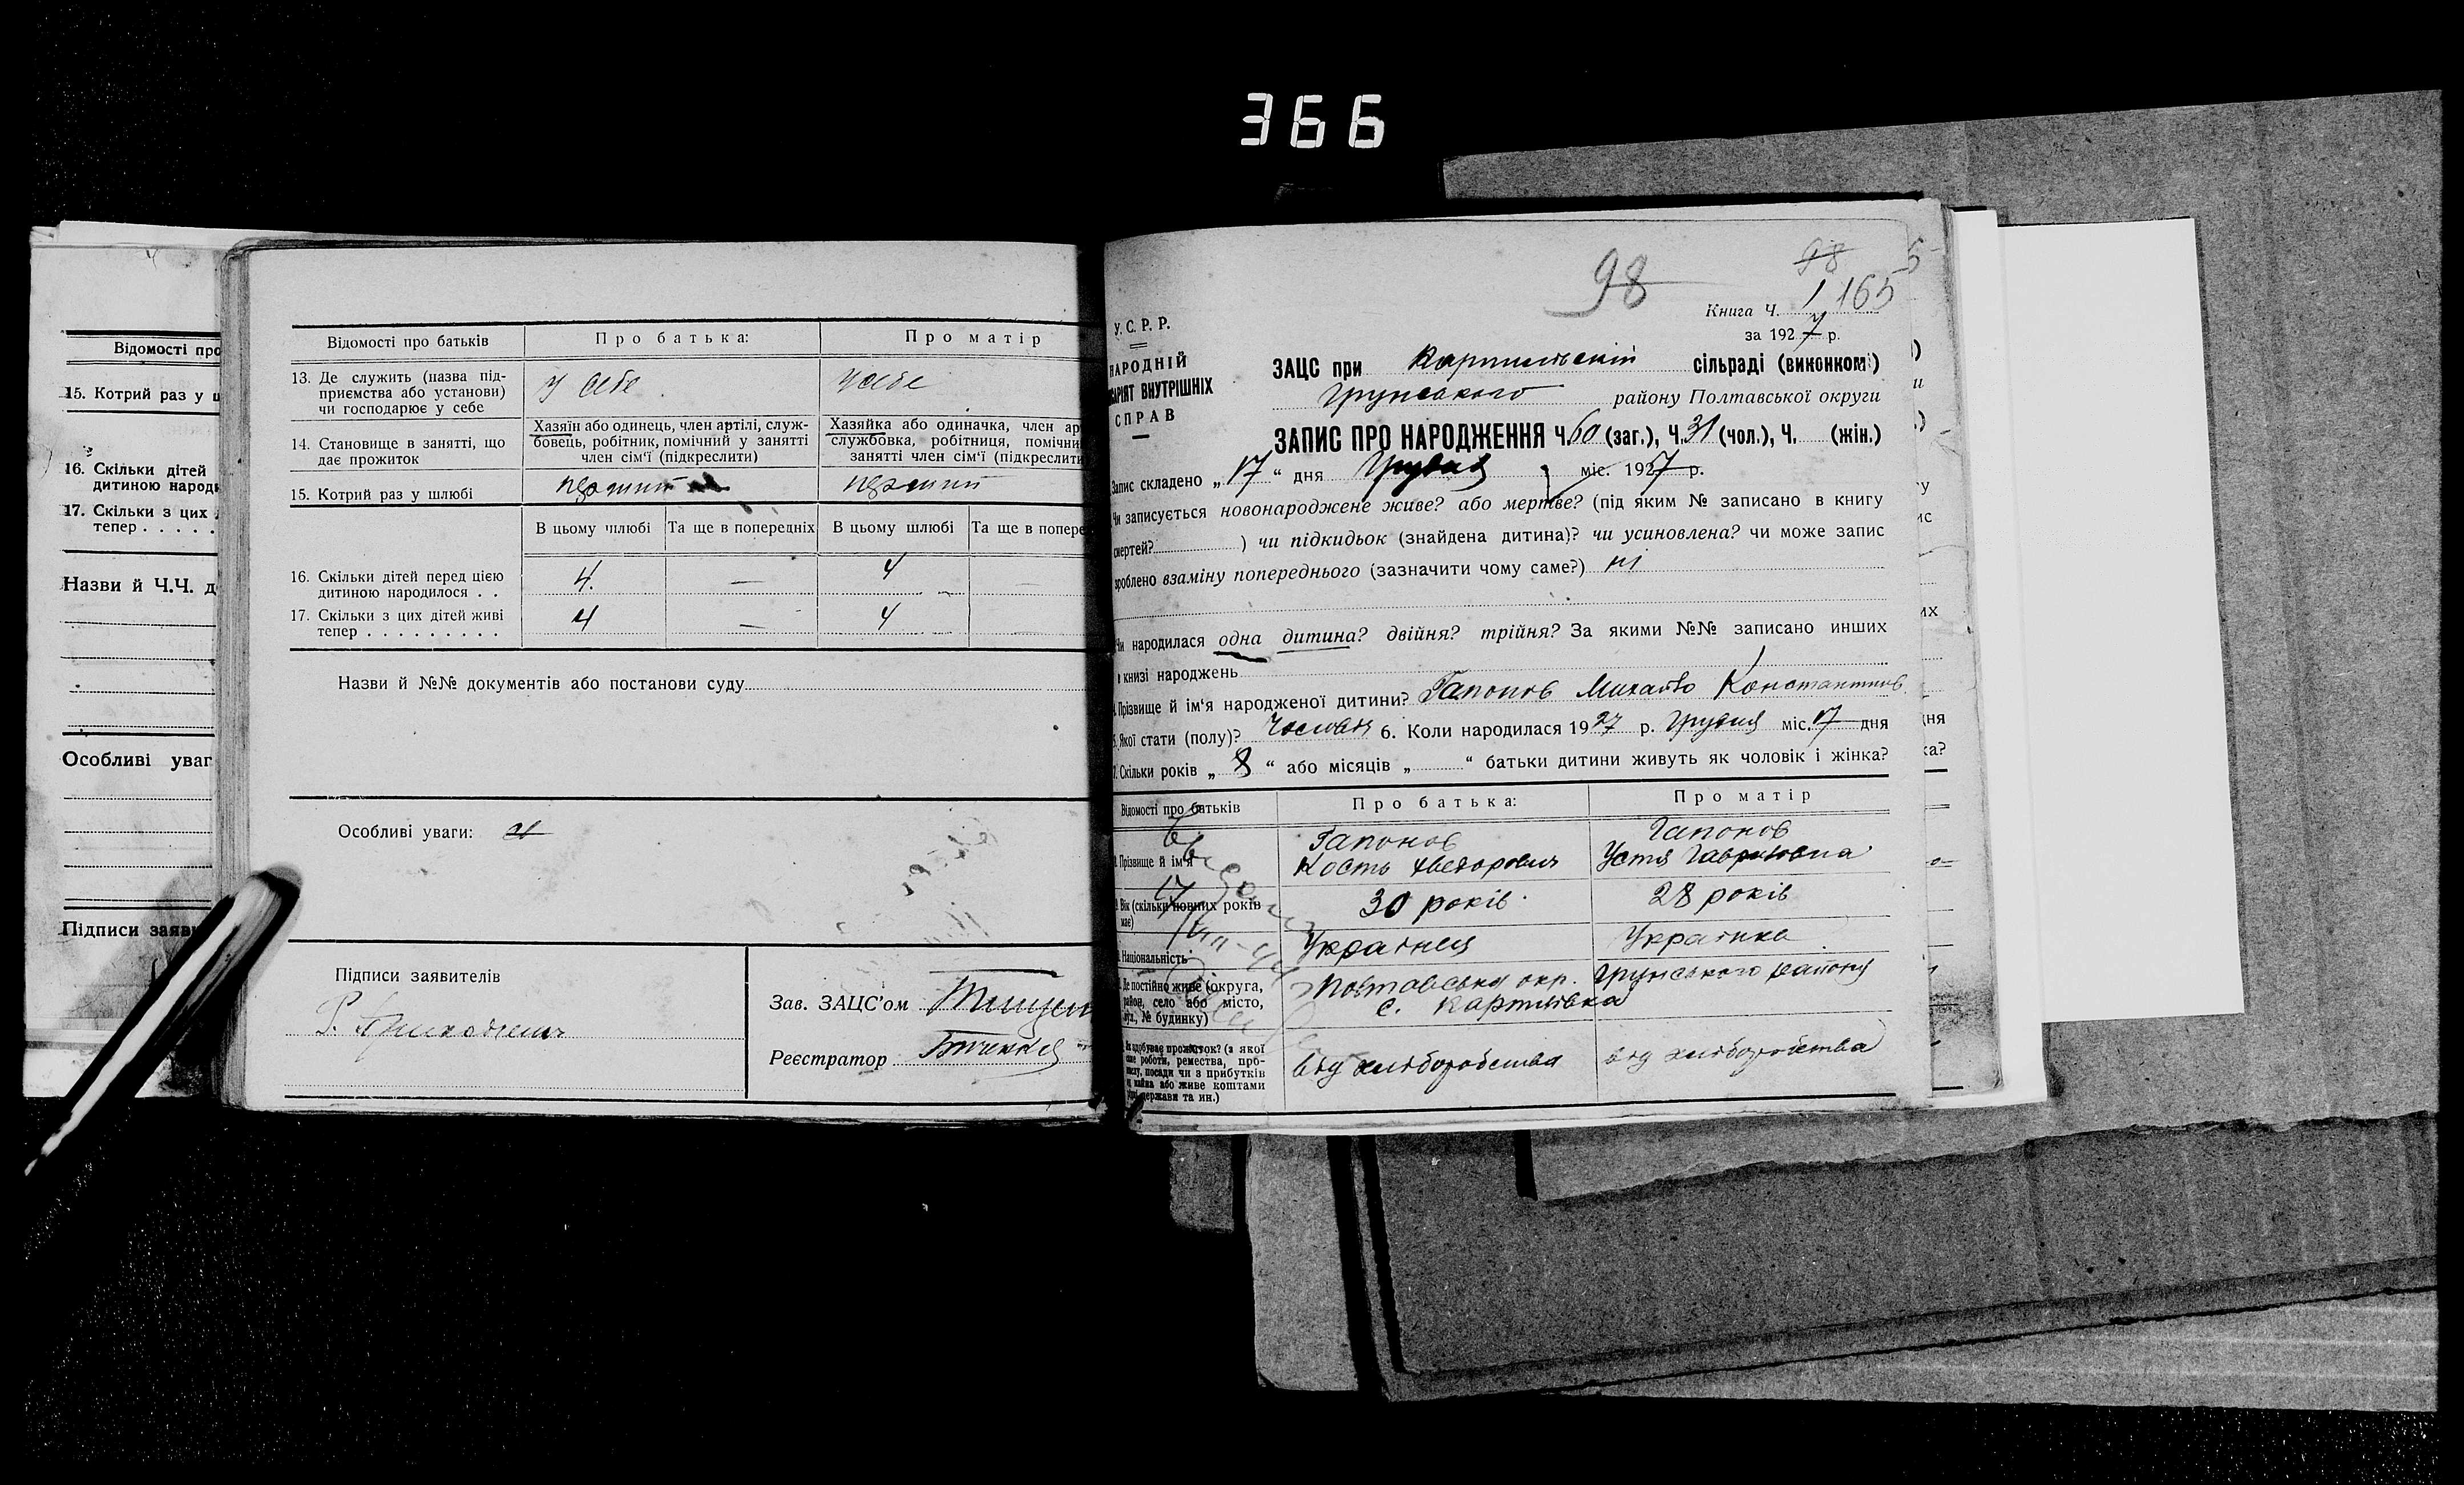 366
Відомості про
15. Котрий раз у ш
16. Скільки дітей
дитиною народ
17. Скільки з цих
тепер . . . . .
Назви й Ч.Ч. д
Особливі уваг
Підписи заяви
Відомості про батьків
Про батька:
Про матір
13. Де служить (назва під-
приємства або установи)
чи господарює у себе
у себе
у себе
14. Становище в занятті, що
дає прожиток
Хазяїн або одинець, член артілі, служ-
бовець, робітник, помічний у занятті
член сім'ї (підкреслити)
Хазяйка або одиначка, член ар
службовка, робітниця, помічни
занятті член сім'ї (підкреслити
15. Котрий раз у шлюбі
перший
перший
В цьому шлюбі
Та ще в попередніх
В цьому шлюбі
Та ще в попере
16. Скільки дітей перед цією
дитиною народилося . .
4
—
4
—
17. Скільки з цих дітей живі
тепер . . . . . . . . .
4
—
4
—
Назви й №№ документів або постанови суду
Особливі уваги:
Підписи заявителів
Зав. ЗАЦС'ом
Реєстратор
98
98
165
Книга Ч. 1
за 1927 р.
У. С. Р. Р.
НАРОДНІЙ
ВНУТРІШНІХ
СПРАВ
ЗАЦС при Карпилівській сільраді (виконком)
Грунського району Полтавської округи
ЗАПИС ПРО НАРОДЖЕННЯ Ч. 60 (заг.), Ч. 31 (чол.), Ч. (жін.)
Запис складено „17“ дня Грудня міс. 1927 р.
Чи записується новонароджене живе? або мертве? (під яким № записано в книгу
смертей? ) чи підкидьок (знайдена дитина)? чи усиновлена? чи може запис
зроблено взаміну попереднього (зазначити чому саме?) ні
Чи народилася одна дитина? двійня? трійня? За якими №№ записано инших
в книзі народжень
Прізвище й ім'я народженої дитини? Гапонов Михайло Константинов
5. Якої стати (полу)? Чоловіч 6. Коли народилася 1927 р. Грудня міс. 17 дня
7. Скільки років „8“ або місяців „ “ батьки дитини живуть як чоловік і жінка?
Відомості про батьків
Про батька:
Про матір
Прізвище й ім'я
Гапонов
Кость Хведорович
Гапонов
Устя Гаврилівна
Вік (скільки повних років
має)
30 років
28 років
Національність
Українець
Українка
Де постійно живе (округа,
район, село або місто,
вул., № будинку)
Полтавська окр. Грунського району
с. Карпилівка
Як здобуває прожиток? (з якої
саме роботи, ремества, про-
мислу, посади чи з прибутків
з майна або живе коштами
держави та ин.)
від хліборобства
від хліборобства